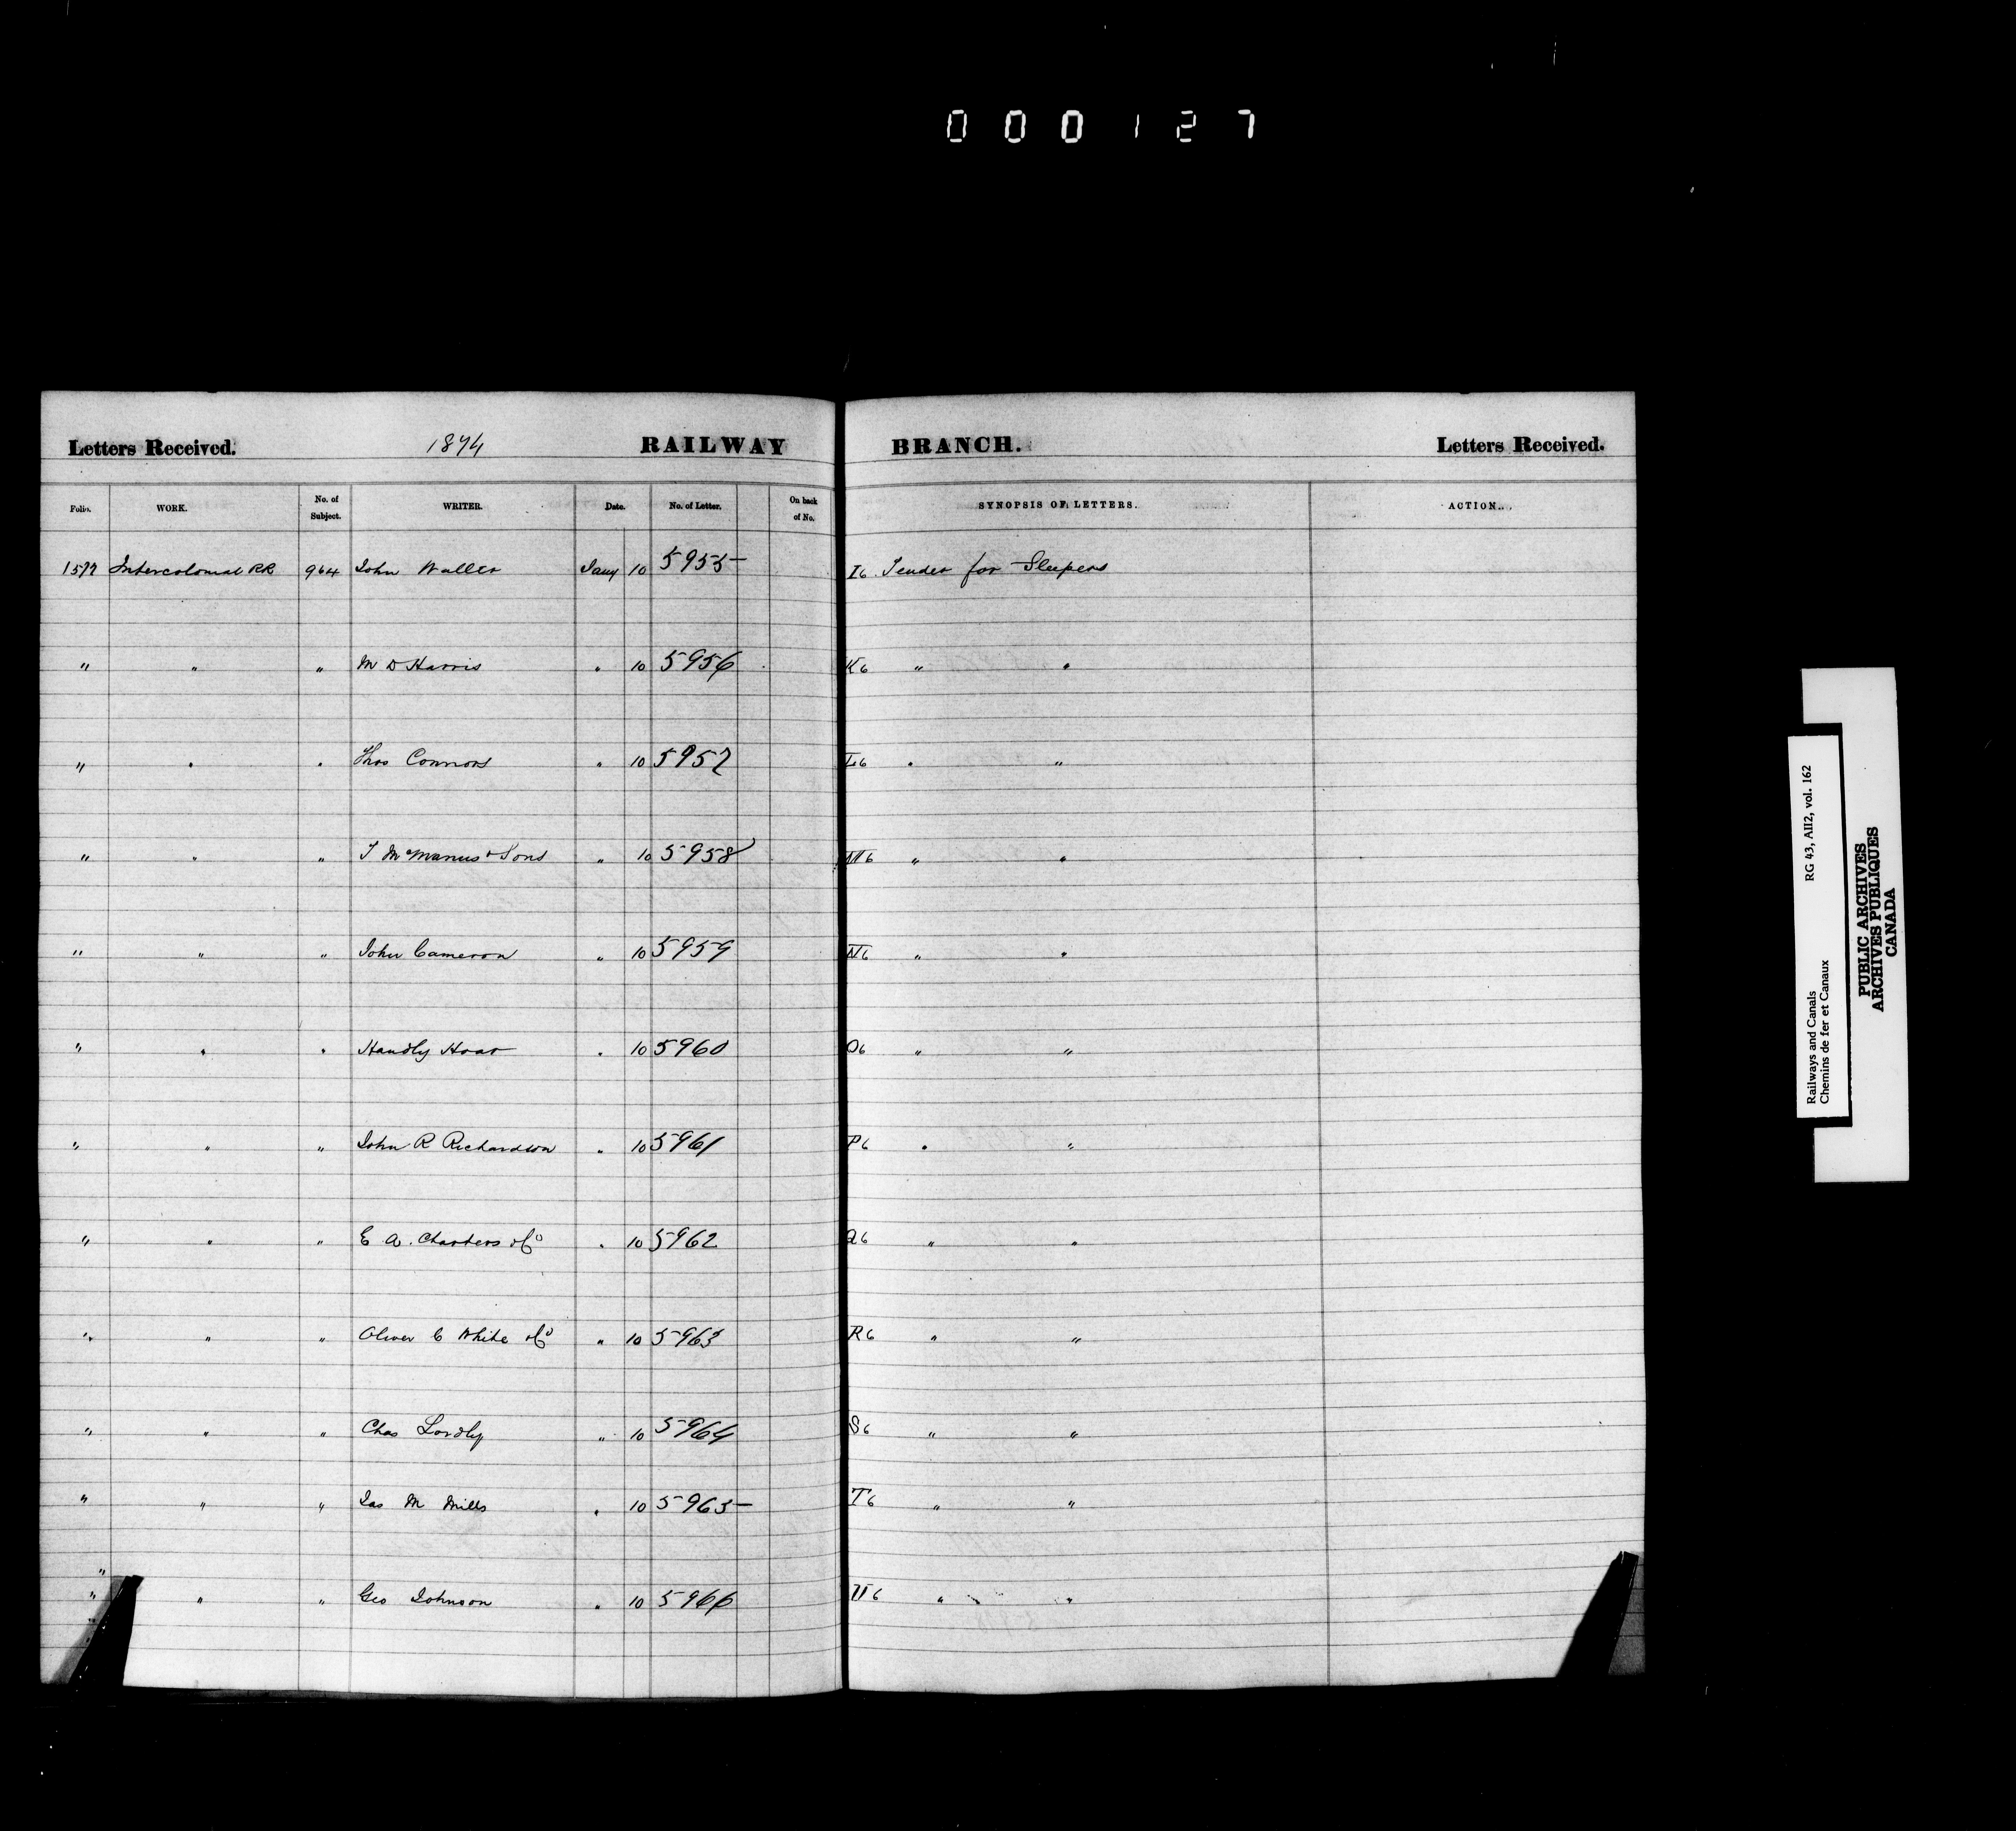 0 0 0 1 2 7
Letters Received. 1874 RAILWAY BRANCH. Letters Received.
Folio. WORK. No. of Subject. WRITER. Date. No. of Letter. On back of No. SYNOPSIS OF LETTERS. ACTION.
1577 Intercolonial RR 964 John Waller Jany 10 5955 I6 Tender for Sleepers
" " " M D Harris " 10 5956 K6 " "
" " " Thos Connors " 10 5957 L6 " "
" " " T McManus & Sons " 10 5958 M6 " "
" " " John Cameron " 10 5959 N6 " "
" " " Handly Hoar " 10 5960 O6 " "
" " " John R Richardson " 10 5961 P6 " "
" " " E A. Charters & Co " 10 5962 Q6 " "
" " " Oliver C White & Co " 10 5963 R6 " "
" " " Chas Lordly " 10 5964 S6 " "
" " " Jas M Mills " 10 5965 T6 " "
"
" " " Geo Johnson " 10 5966 U6 " "
"
Railways and Canals RG 43, AII2, vol. 162
Chemins de fer et Canaux
PUBLIC ARCHIVES
ARCHIVES PUBLIQUES
CANADA